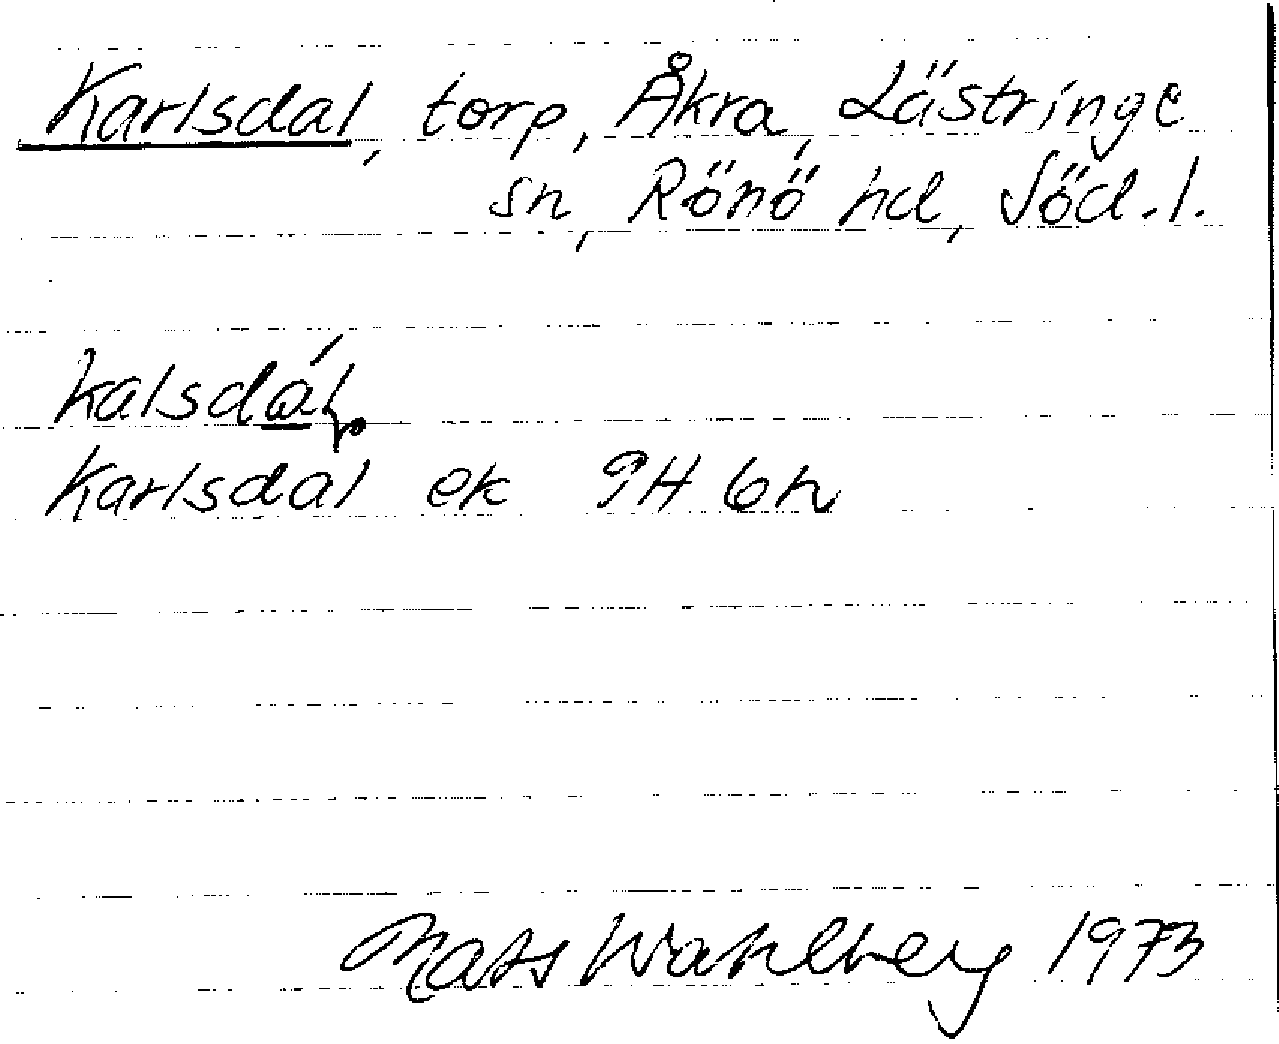 Karlsdal, torp, Åkra, Lästringe
sn, Rönö hd, Söd.l.
kalsdál
Karlsdal ek 9H 6h
Mats Wahlberg 1973